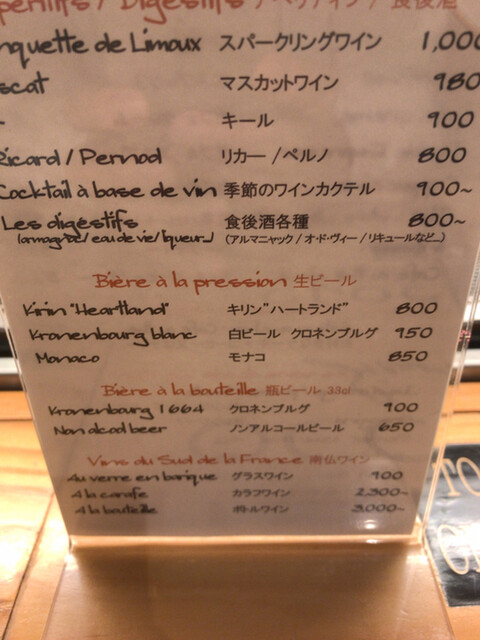 péritifs / Digestifs アペリティフ / 食後酒
nquette de Limoux スパークリングワイン 1,000
scat マスカットワイン 980
キール 900
Ricard / Pernod リカー / ペルノ 800
Cocktail à base de vin 季節のワインカクテル 900~
Les digéstifs 食後酒各種 800~
(armagnac/ eau de vie/ liqueur...) (アルマニャック / オ・ド・ヴィー / リキュールなど...)
Bière à la pression 生ビール
Kirin "Heartland" キリン"ハートランド" 800
Kronenbourg blanc 白ビール クロネンブルグ 950
Monaco モナコ 850
Bière à la bouteille 瓶ビール 33cl
Kronenbourg 1664 クロネンブルグ 900
Non alcool beer ノンアルコールビール 650
Vins du Sud de la France 南仏ワイン
Au verre en barique グラスワイン 900
A la carafe カラフワイン 2,300~
A la bouteille ボトルワイン 3,000~